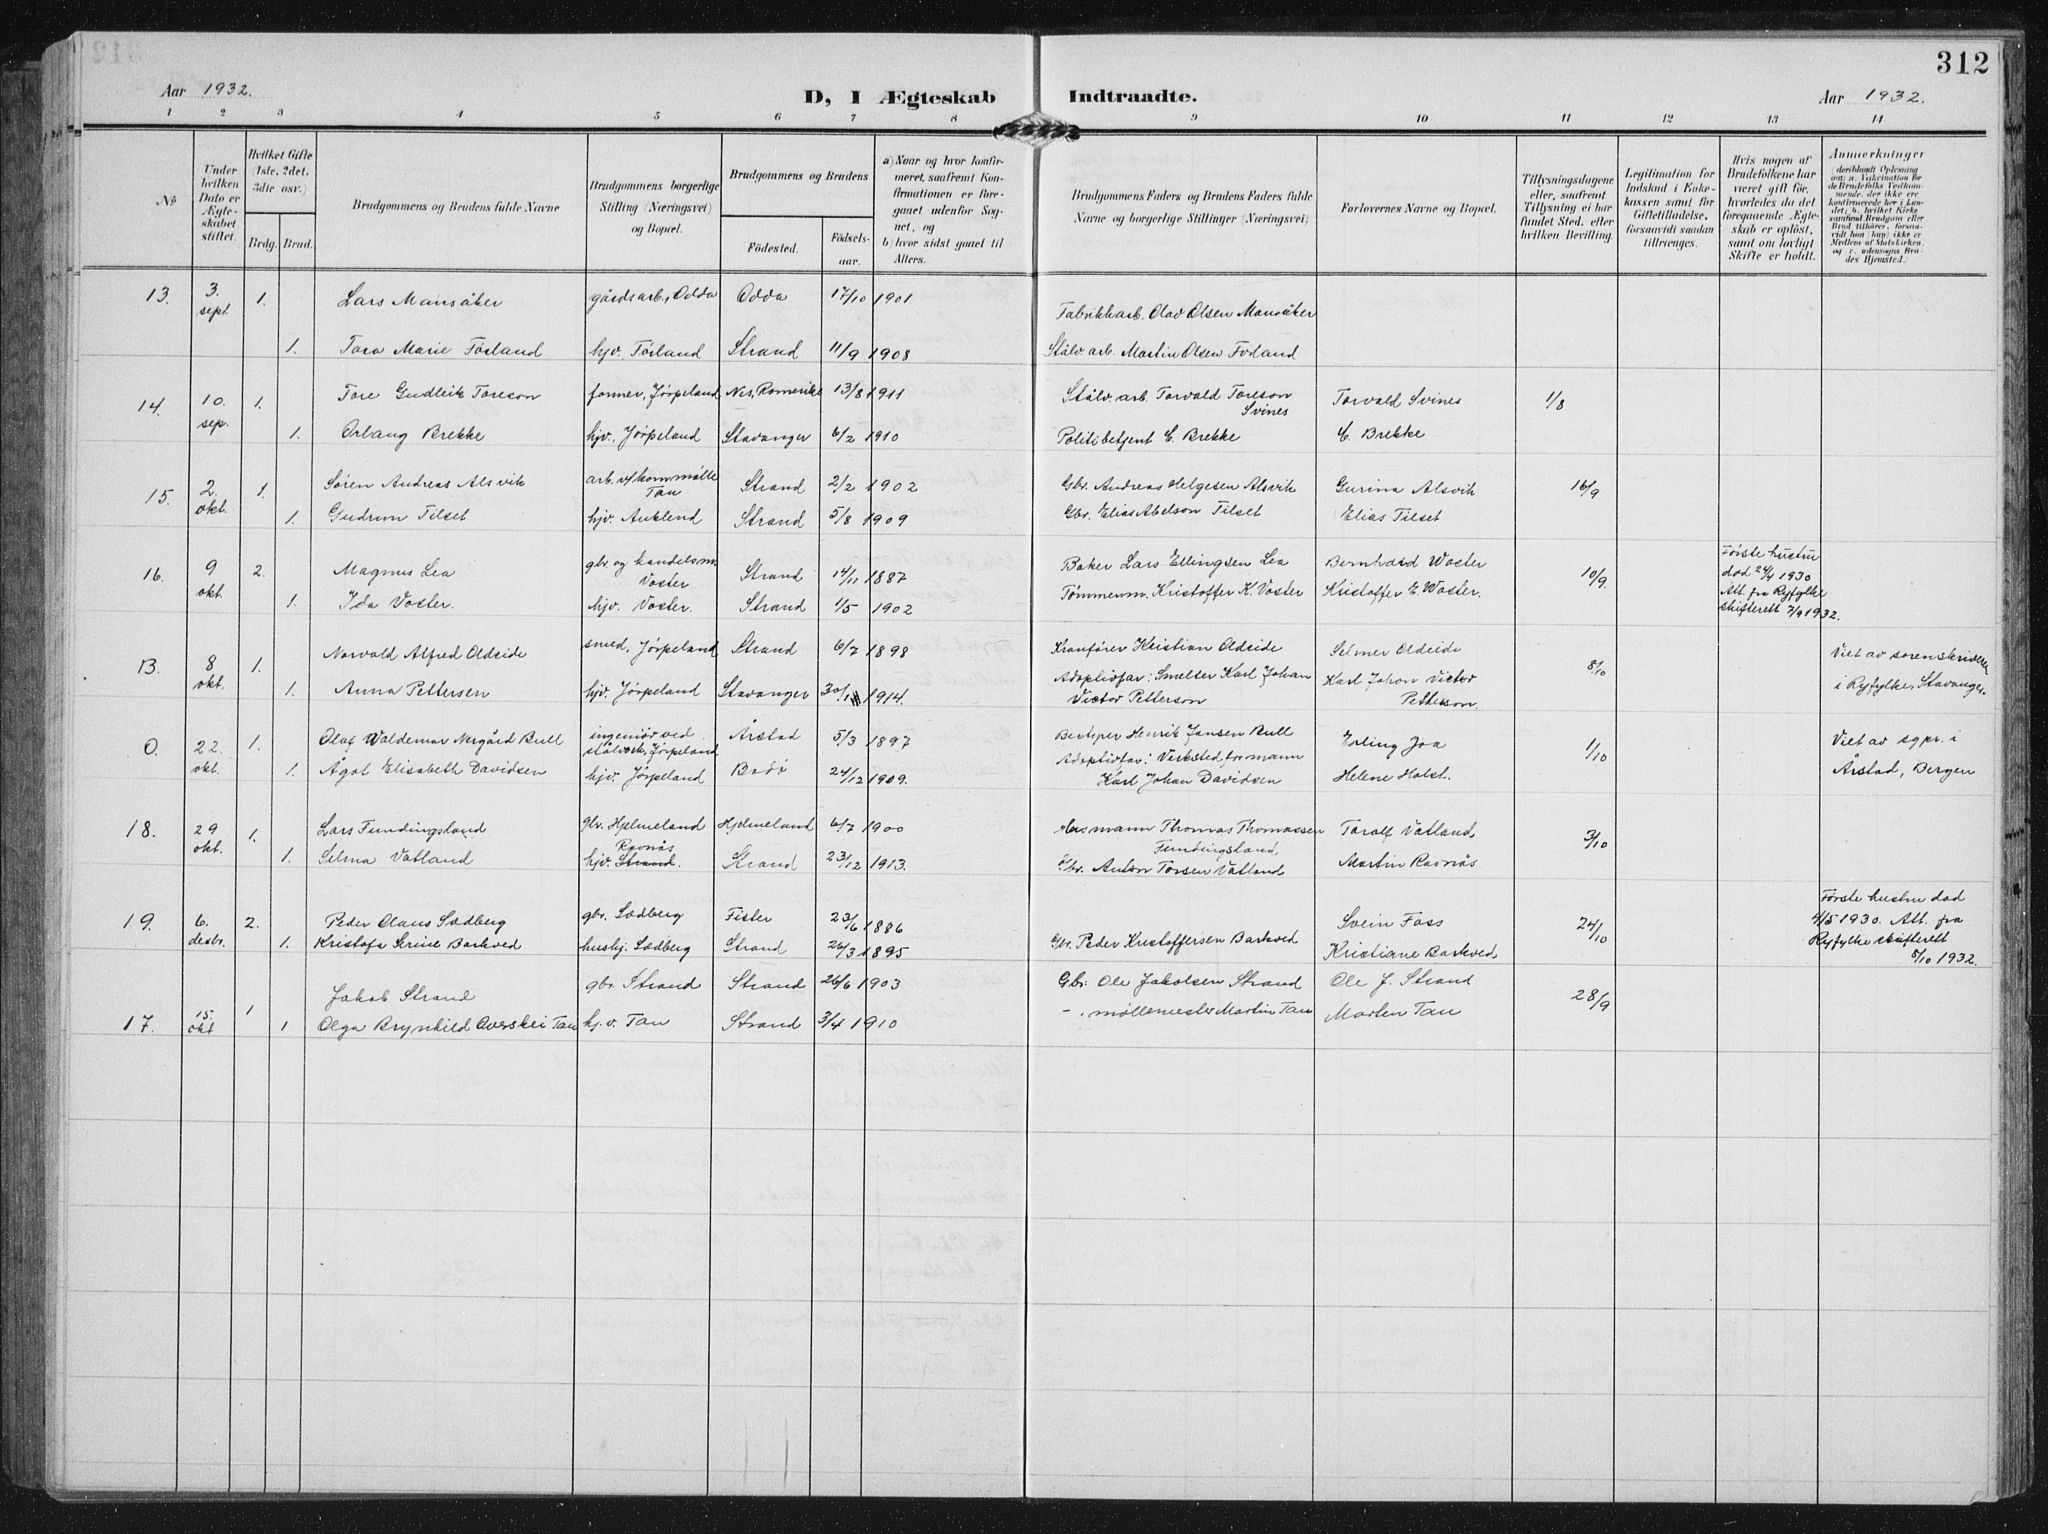 312
Aar 1932.
D, I Ægteskab Indtraadte.
Aar 1932.
1 2 3 4 5 6 7 8 9 10 11 12 13 14
No
Under hvilken Dato er Ægteskabet stiftet.
Hvilket Gifte (1ste, 2det, 3die osv.)
Brdg. Brud.
Brudgommens og Brudens fulde Navne
Brudgommens borgerlige Stilling (Næringsvei) og Bopæl.
Brudgommens og Brudens
Födested.
Födselsaar.
a) Naar og hvor konfirmeret, saafremt Konfirmationen er foregaaet udenfor Sognet, og
b) hvor sidst gaaet til Alters.
Brudgommens Faders og Brudens Faders fulde Navne og borgerlige Stillinger (Næringsvei)
Forlovernes Navne og Bopæl.
Tillysningsdagene eller, saafremt Tillysning ei har fundet Sted, efter hvilken Bevilling.
Legitimation for Indskud i Enkekassen samt for Giftetilladelse, forsaavidt saadan tiltrænges.
Hvis nogen af Brudefolkene har været gift för, hvorledes da det foregaaende Ægteskab er oplöst, samt om lovligt Skifte er holdt.
Anmærkninger
deriblandt Oplysning om: a. Vakcination for de Brudefolks Vedkommende, der ikke ere konfirmerede her i Landet; b. hvilket Kirkesamfund Brudgom eller Brud tilhörer, forsaavidt han (hun) ikke er Medlem af Statskirken, og c. udensogns Brudes Hjemsted.)
13. 3. sept. 1. Lars Mansåker gårdsarb., Odda Odda 17/10 1901 Fabrikkarb. Olav Olsen Mansåker
1. Tora Marie Førland hjv. Førland Strand 11/9 1908 Stålv. arb. Martin Olsen Forland
14. 10. sep. 1. Tore Gudleik Toreson former, Jørpeland Nes, Romerike 13/8 1911 Stålv. arb. Torvald Toreson Svines Torvald Svines 1/8
1. Orlaug Brekke hjv. Jørpeland Stavanger 6/2 1910 Politibetjent C. Brekke C. Brekke
15. 2. okt. 1. Søren Andreas Alsvik arb. v/kornmølle Tau Strand 2/2 1902 Gbr. Andreas Helgesen Alsvik Gurina Alsvik 16/9
1. Gudrun Tilset hjv. Auklend Strand 5/8 1909 Gbr. Elias Abelson Tilset Elias Tilset
16. 9 okt. 2. Magnus Lea gbr. og handelsm. Voster Strand 14/11 1887 Baker Lars Ellingsen Lea Bernhard Woster 10/9. Første hustru død 24/4 1930 Att. fra Ryfylke skifterett 7/9 1932.
1. Ida Voster. hjv. Voster. Strand 1/5 1902 Tømmerm. Kristoffer K. Voster Kristoffer E. Woster.
B. 8 okt. 1. Norvald Alfred Oldeide smed, Jørpeland Strand 6/7 1898 Kranfører Kristian Oldeide Selmer Oldeide 8/10 Viet av sorenskriveren i Ryfylke, Stavanger.
1. Anna Pettersen hjv. Jørpeland Stavanger 30/1 1914. Adoptivfar: Smelter Karl Johan Victor Petterson Karl Johan Victor Petterson.
O. 22. okt. 1. Olaf Waldemar Norgård Bull ingeniør ved stålverk, Jørpeland Årstad 5/3 1897 Henrik Jansen Bull Erling Joa 1/10 Viet av sgpr. i Årstad, Bergen
1. Ågot Elisabeth Davidsen hjv. Jørpeland Bodø 24/12 1909. Adoptivfar: Verkstedformann Karl Johan Davidsen Helene Holst.
18. 29 okt. 1. Lars Fundingsland gbr. Hjelmeland Hjelmeland 6/7 1900 Thomas Thomassen Fundingsland, Toralf Vatland 3/10
1. Selma Vatland hjv. Strand. Ravnås Strand 23/12 1913. Gbr. Anton Torsen Vatland Martin Ravnås
19. 6. desbr. 2. Peder Olaus Sedberg gbr. Sedberg Fister 23/6 1886 Svein Foss 24/10 Første hustru død 4/5 1930. Att. fra Ryfylke skifterett 8/10 1932.
1. Kristofa Serine Barkved hushj. Sedberg Strand 26/3 1895 Gbr. Peder Kristoffersen Barkved Kristiane Barkved
17. 15. okt 1 Jakob Strand gbr. Strand Strand 26/6 1903 Gbr. Ole Jakobsen Strand Ole J. Strand 28/9
1 Olga Brynhild Overskei Tau hj. v. Tau Strand 3/4 1910 møllemester Martin Tau Morten Tau